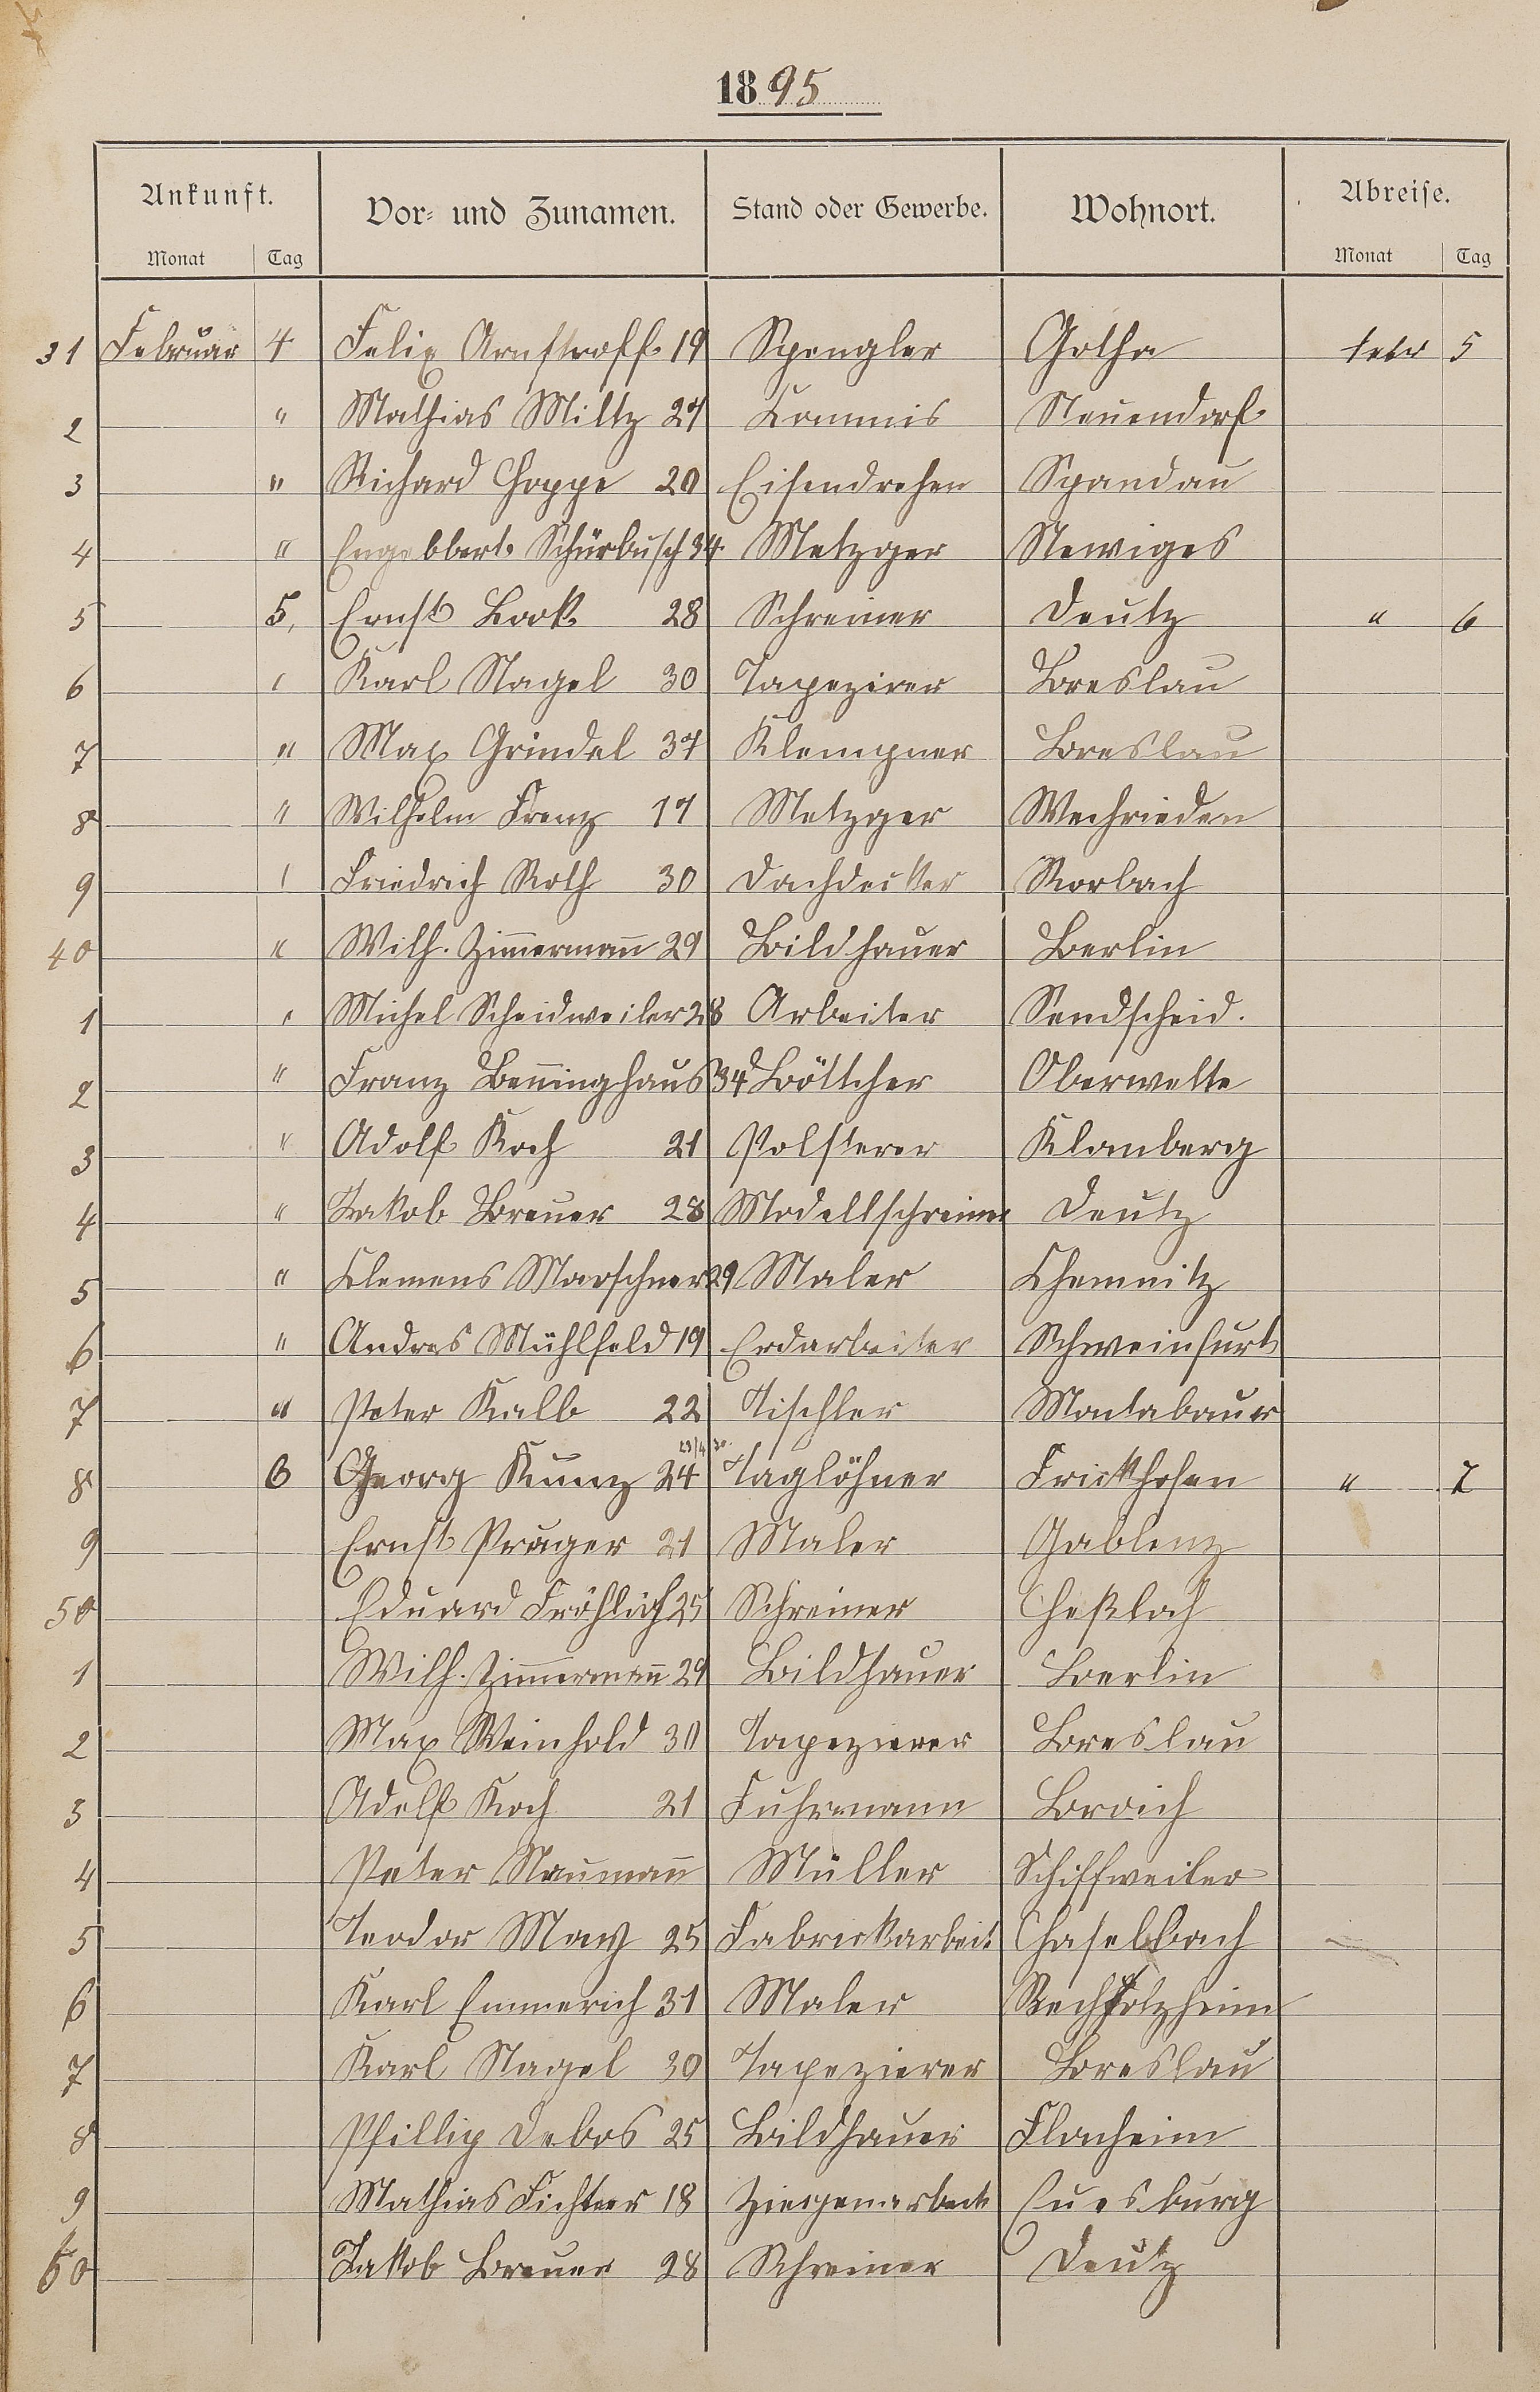 1895
Ankunft. Vor- und Zunamen. Stand oder Gewerbe. Wohnort. Abreise.
Monat Tag Monat Tag
31 Februar 4 Felix Arnstroff 19 Spengler Gotha Febr 5
2 " Mathias Miltz 27 Kommis Neuendorf
3 " Richard Hoppe 20 Eisendreher Spandau
4 " Engelbert Schürbusch 34 Metzger Neviges
5 5, Ernst Book 28 Schreiner Deutz " 6
6 " Karl Nagel 30 Tapezirer Breslau
7 " Max Grindel 37 Klempner Breslau
8 " Wilhelm Frenz 17 Metzger
9 " Friedrich Roth 30 Dachdecker Rorbach
40 " Wilh. Zimmermann 29 Bildhauer Berlin
1 " Michel Scheidweiler 28 Arbeiter
2 " Franz Benninghaus 34 Böttcher
3 " Adolf Koch 21 Polsterer
4 " Jakob Breuer 28 Modellschreiner Deutz
5 " Klemens Marschner 29 Maler Chemnitz
6 " Andres Mühlfeld 19 Erdarbeiter Schweinfurt
7 " Peter Kalb 22 Tischler Montabauer
8 6 Georg Kunz 24 Taglöhner Frickhofen " 7
9 Ernst Prager 21 Maler Gablenz
50 Eduard Fröhlich 25 Schreiner Heßloch
1 Wilh. Zimmermann 29 Bildhauer Berlin
2 Max Weinhold 30 Tapezierer Breslau
3 Adolf Koch 21 Fuhrmann Broich
4 Peter Naumann Müller Schiffweiler
5 Teodor May 25 Fabrickarbeit Haselbach
6 Karl Emmerich 31 Maler
7 Karl Nagel 30 Tapezierer Breslau
8 Phillip Debos 25 Bildhauer Flonheim
9 Mathias Fichter 18
60 Jakob Breuer 28 Schreiner Deutz